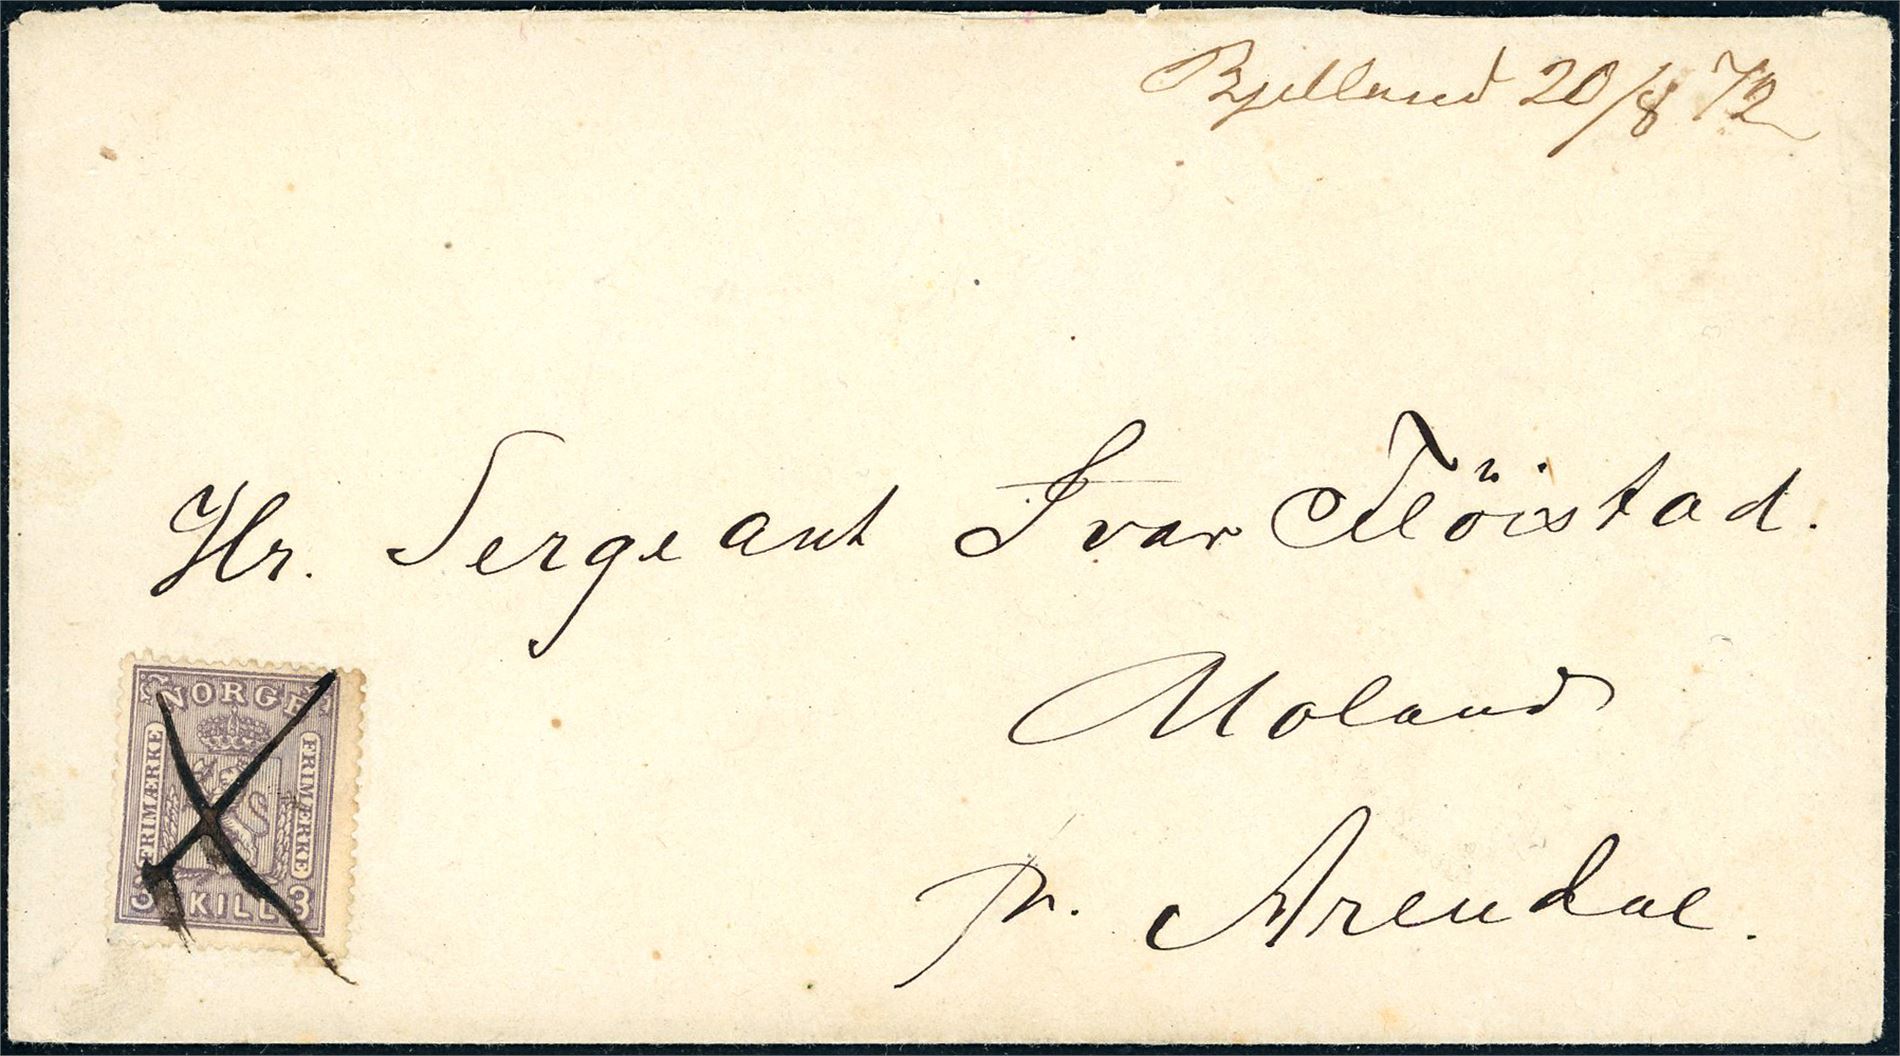 Bjelland 20/8 72
Hr. Sergeant Ivar Flöistad.
Moland
pr. Arendal.
NORGE
FRIMÆRKE
FRIMÆRKE
3 SKILL 3